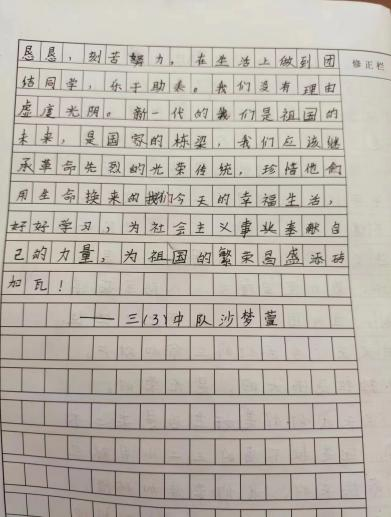 恳恳，刻苦努力，在生活上做到团
修正栏
结同学，乐于助人。我们没有理由
虚度光阴。新一代的我们是祖国的
未来，是国家的栋梁，我们应该继
承革命先烈的光荣传统，珍惜他们
用生命换来的我们今天的幸福生活，
好好学习，为社会主义事业奉献自
己的力量，为祖国的繁荣昌盛添砖
加瓦！
——三（3）中队沙梦萱